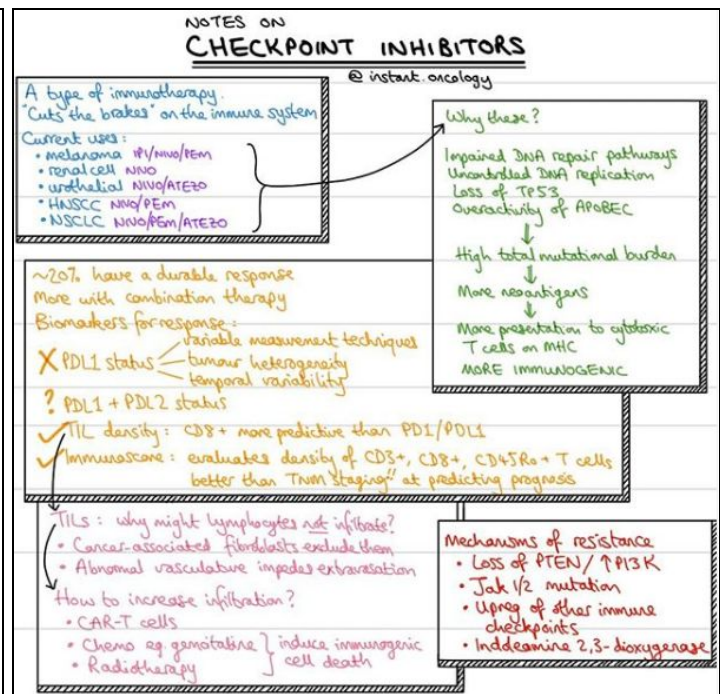 NOTES ON
CHECKPOINT INHIBITORS
@instant.oncology
A type of immunotherapy.
"Cuts the brakes" on the immune system
Current uses:
• melanoma IPI/NIVO/PEM
• renal cell NIVO
• urothelial NIVO/ATEZO
• HNSCC NIVO/PEM
• NSCLC NIVO/PEM/ATEZO
Why these?
Impaired DNA repair pathways
Uncontrolled DNA replication
Loss of TP53
Overactivity of APOBEC
↓
High total mutational burden
↓
More neoantigens
↓
More presentation to cytotoxic
T cells on MHC
MORE IMMUNOGENIC
~20% have a durable response
More with combination therapy
Biomarkers for response:
X PDL1 status
variable measurement techniques
tumour heterogeneity
temporal variability
? PDL1 + PDL2 status
✓ TIL density: CD8+ more predictive than PD1/PDL1
✓ Immunoscore: evaluates density of CD3+, CD8+, CD45Ro+ T cells
better than TNM staging!! at predicting prognosis
TILs: why might lymphocytes not infiltrate?
• Cancer-associated fibroblasts exclude them
• Abnormal vasculature impedes extravasation
How to increase infiltration?
• CAR-T cells
• Chemo eg. gemcitabine
• Radiotherapy
} induce immunogenic
cell death
Mechanisms of resistance
• Loss of PTEN/↑PI3K
• Jak 1/2 mutation
• Upreg of other immune
checkpoints
• Inddeamine 2,3-dioxygenase